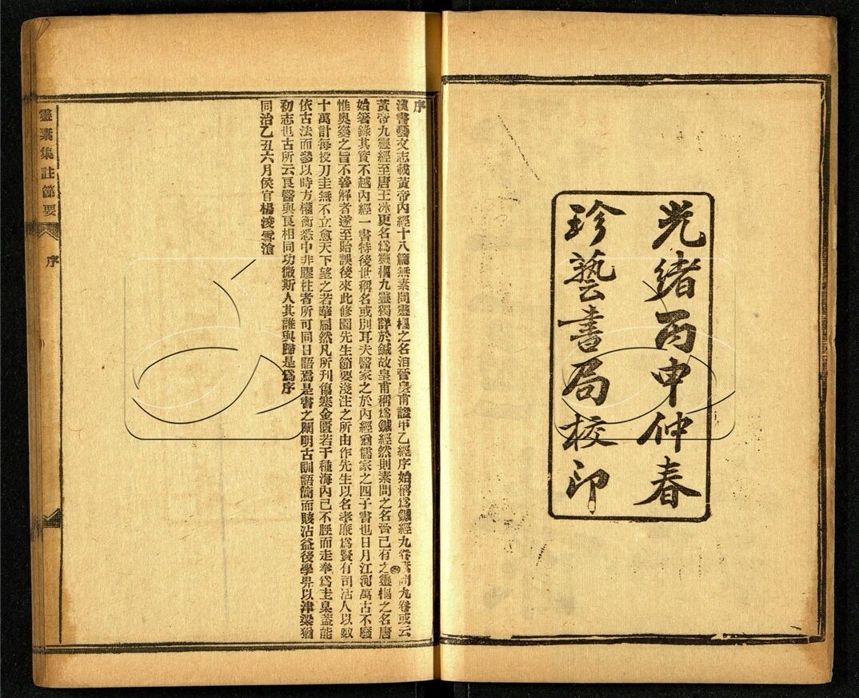 光緒丙申仲春
珍藝書局校印
序
漢書藝文志載黃帝內經十八篇無素問靈樞之名洎晉皇甫謐甲乙經序始稱爲鍼經九卷素問九卷或云
黃帝九靈經至唐王冰更名爲靈樞九靈獨詳於鍼故皇甫稱爲鍼經然則素問之名晉已有之靈樞之名唐
始箸錄其實不越內經一書特後世稱名或別耳夫醫家之於內經猶儒家之四子書也日月江河萬古不廢
惟奧窔之旨不善解者遂至貽誤後來此修園先生節要淺注之所由作先生以名孝廉爲賢有司活人以數
十萬計每投刀圭無不立愈天下望之若華扁然凡所刊傷寒金匱若干種海內已不脛而走奉爲圭臬蓋能
依古法而參以時方權衡悉中非膠柱者所可同日語焉是書之闡明古訓語簡而賅沾益後學畀以津梁猶
初志也古所云良醫與良相同功微斯人其誰與歸是爲序
同治乙丑六月侯官楊浚雪滄
靈素集註節要
序